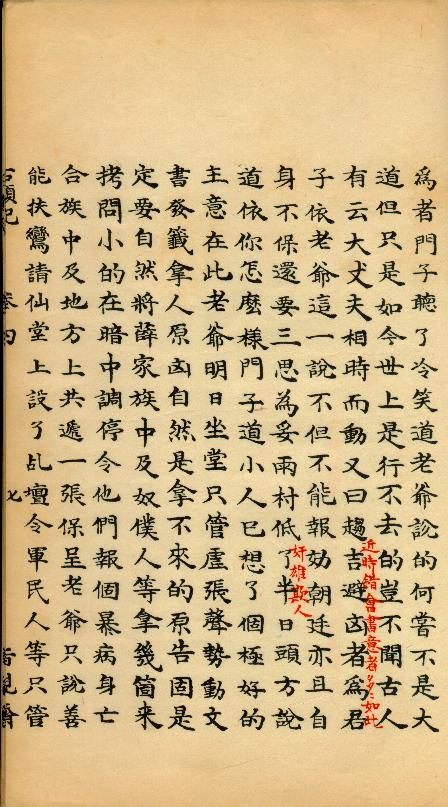 為者門子聽了冷笑道老爺說的何嘗不是大
道但只是如今世上是行不去的豈不聞古人
有云大丈夫相時而動又曰趨吉避凶者為君
近時錯會書意者多多如此
子依老爺這一說不但不能報効朝廷亦且自
身不保還要三思為妥雨村低了半日頭方說
奸雄欺人
道依你怎麼樣門子道小人已想了個極好的
主意在此老爺明日坐堂只管虛張聲勢動文
書發籤拿人原凶自然是拿不來的原告固是
定要自然將薛家族中及奴僕人等拿幾箇來
拷問小的在暗中調停令他們報個暴病身亡
合族中及地方上共遞一張保呈老爺只說善
能扶鸞請仙堂上設了乩壇令軍民人等只管
石頭記 卷四 七 脂硯齋